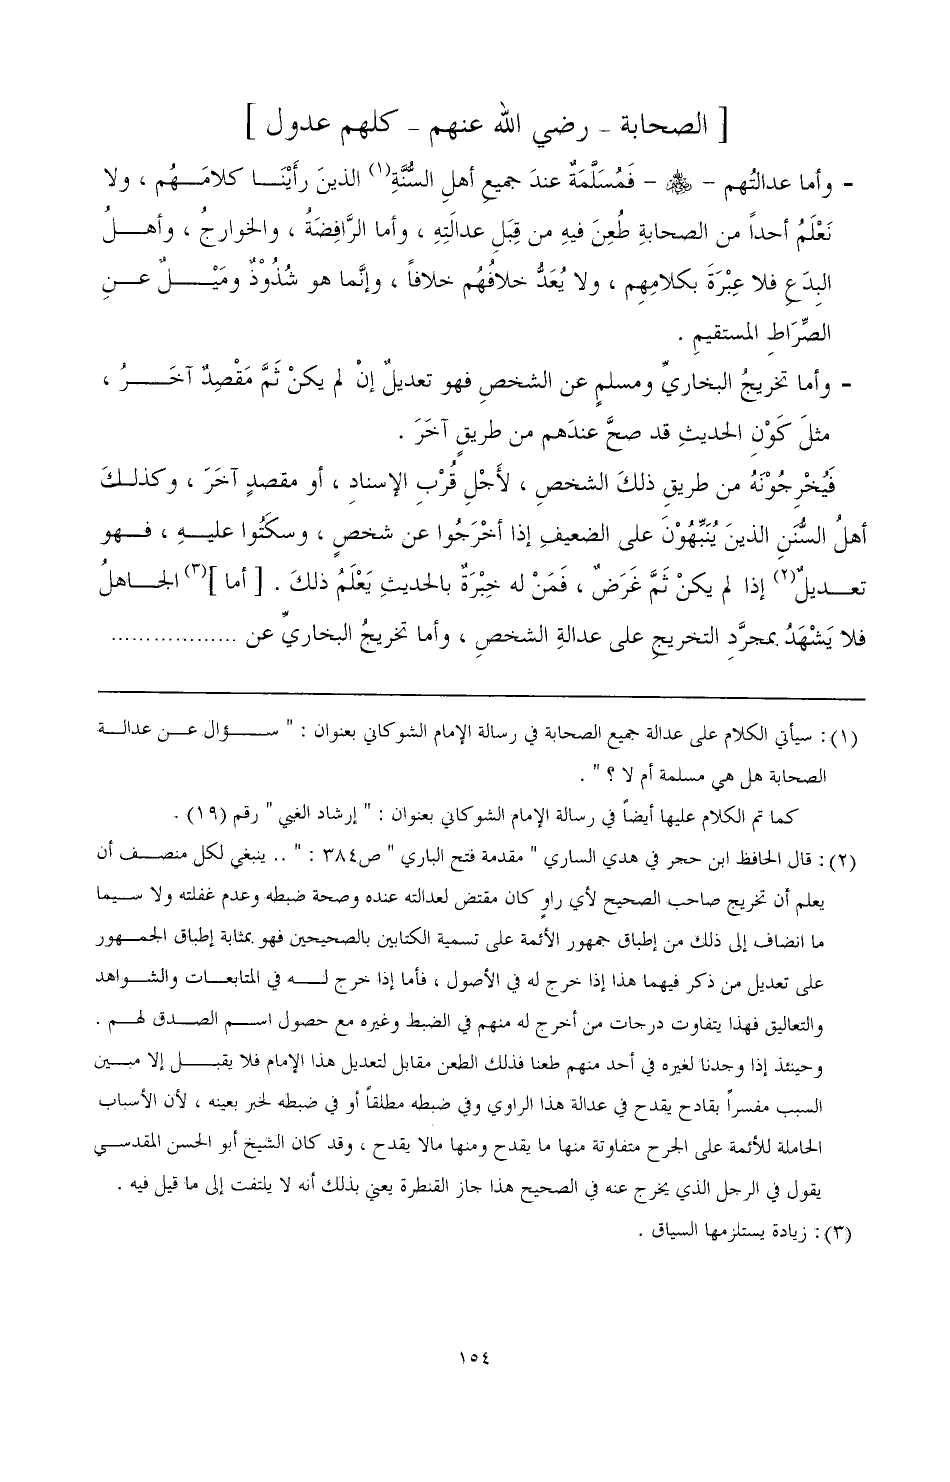 [ الصحابة - رضي الله عنهم - كلهم عدول ]
- وأما عدالتُهم - - فَمُسَلَّمَةٌ عندَ جميعِ أهلِ السُّنَّةِ(١) الذينَ رأيْنَا كلامَهُم ، ولا
نَعْلَمُ أحداً من الصحابةِ طُعِنَ فيهِ من قِبَلِ عدالَتِهِ ، وأما الرَّافِضَةُ ، والخوارجُ ، وأهلُ
البِدَعِ فلا عِبْرَةَ بكلامِهِم ، ولا يُعَدُّ خلافُهُم خلافاً ، وإنَّما هو شُذُوْذٌ ومَيْلٌ عنِ
الصِّرَاطِ المستقيمِ .
- وأما تخريجُ البخاريِّ ومسلمٍ عن الشخصِ فهو تعديلٌ إنْ لم يكنْ ثَمَّ مَقْصِدٌ آخَرُ ،
مثلَ كَوْنِ الحديثِ قد صحَّ عندَهم من طريقٍ آخَرَ .
فَيُخْرِجُوْنَهُ من طريقِ ذلكَ الشخصِ ، لأَجْلِ قُرْبِ الإسنادِ ، أو مقصدٍ آخَرَ ، وكذلكَ
أهلُ السُّنَنِ الذينَ يُنَبِّهُوْنَ على الضعيفِ إذا أخْرَجُوا عن شخصٍ ، وسكَتُوا عليهِ ، فهو
تعديلٌ(٢) إذا لم يكنْ ثَمَّ غَرَضٌ ، فَمَنْ له خِبْرَةٌ بالحديثِ يَعْلَمُ ذلكَ . [ أما ](٣) الجاهلُ
فلا يَشْهَدُ بمجرَّدِ التخريجِ على عدالةِ الشخصِ ، وأما تخريجُ البخاريِّ عن ..................
(١): سيأتي الكلام على عدالة جميع الصحابة في رسالة الإمام الشوكاني بعنوان : " سؤال عن عدالة
الصحابة هل هي مسلمة أم لا ؟ " .
كما تم الكلام عليها أيضاً في رسالة الإمام الشوكاني بعنوان : " إرشاد الغبي " رقم (١٩) .
(٢): قال الحافظ ابن حجر في هدي الساري " مقدمة فتح الباري " ص٣٨٤ : " .. ينبغي لكل منصف أن
يعلم أن تخريج صاحب الصحيح لأي راوٍ كان مقتض لعدالته عنده وصحة ضبطه وعدم غفلته ولا سيما
ما انضاف إلى ذلك من إطباق جمهور الأئمة على تسمية الكتابين بالصحيحين فهو بمثابة إطباق الجمهور
على تعديل من ذكر فيهما هذا إذا خرج له في الأصول ، فأما إذا خرج له في المتابعات والشواهد
والتعاليق فهذا يتفاوت درجات من أخرج له منهم في الضبط وغيره مع حصول اسم الصدق لهم .
وحينئذ إذا وجدنا لغيره في أحد منهم طعنا فذلك الطعن مقابل لتعديل هذا الإمام فلا يقبل إلا مبين
السبب مفسراً بقادح يقدح في عدالة هذا الراوي وفي ضبطه مطلقاً أو في ضبطه لخبر بعينه ، لأن الأسباب
الحاملة للأئمة على الجرح متفاوتة منها ما يقدح ومنها مالا يقدح ، وقد كان الشيخ أبو الحسن المقدسي
يقول في الرجل الذي يخرج عنه في الصحيح هذا جاز القنطرة يعني بذلك أنه لا يلتفت إلى ما قيل فيه .
(٣): زيادة يستلزمها السياق .
١٥٤